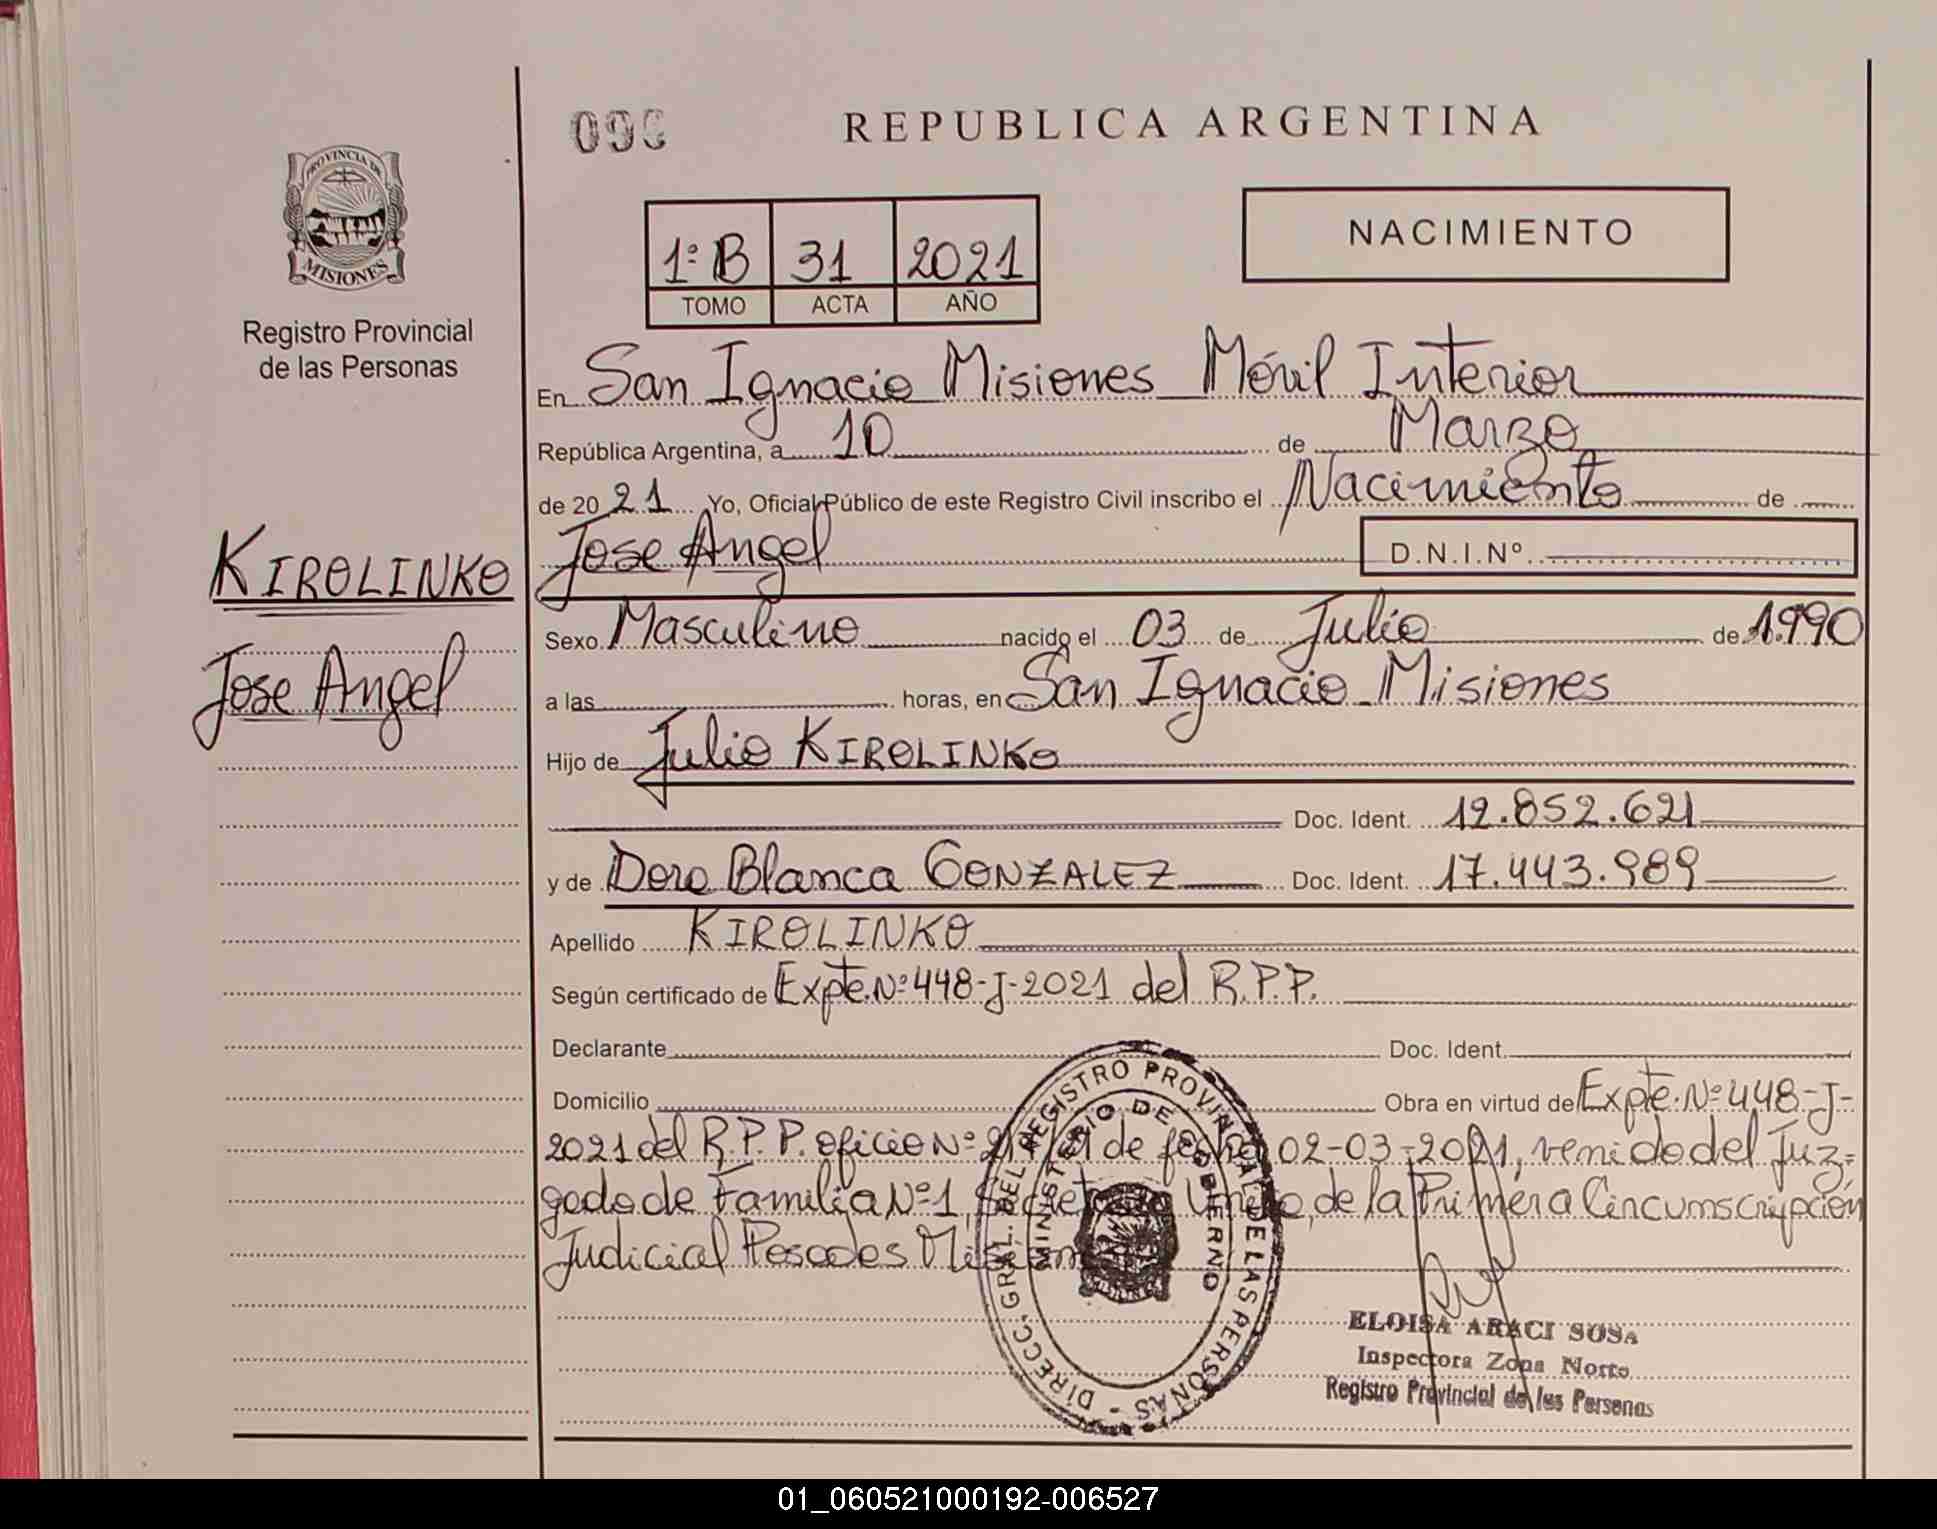 REPUBLICA ARGENTINA
PROVINCIA DE
MISIONES
Registro Provincial
de las Personas
NACIMIENTO
1º B 31 2021
TOMO ACTA AÑO
En San Ignacio Misiones Móvil Interior
República Argentina, a 10 de Marzo
de 2021 Yo, Oficial Público de este Registro Civil inscribo el Nacimiento de
KIROLINKO
Jose Angel
Jose Angel D.N.I.Nº
Sexo Masculino nacido el 03 de Julio de 1.990
a las horas, en San Ignacio Misiones
Hijo de Julio KIROLINKO
Doc. Ident. 12.852.621
y de Dora Blanca GONZALEZ Doc. Ident. 17.443.989
Apellido KIROLINKO
Según certificado de Expte.Nº 448-J-2021 del R.P.P.
Declarante Doc. Ident.
Domicilio Obra en virtud de Expte.Nº 448-J-
2021 del R.P.P. oficio Nº de fecha 02-03-2021, venido del Juz=
gado de Familia Nº1, Secretaria Unica, de la Primera Circunscripción
Judicial Posadas Misiones
DIRECC. GRAL. DEL REGISTRO PROVINCIAL DE LAS PERSONAS -
MINISTERIO DE GOBIERNO
ELOISA ARACI SOSA
Inspectora Zona Norte
Registro Provincial de las Personas
01_060521000192-006527